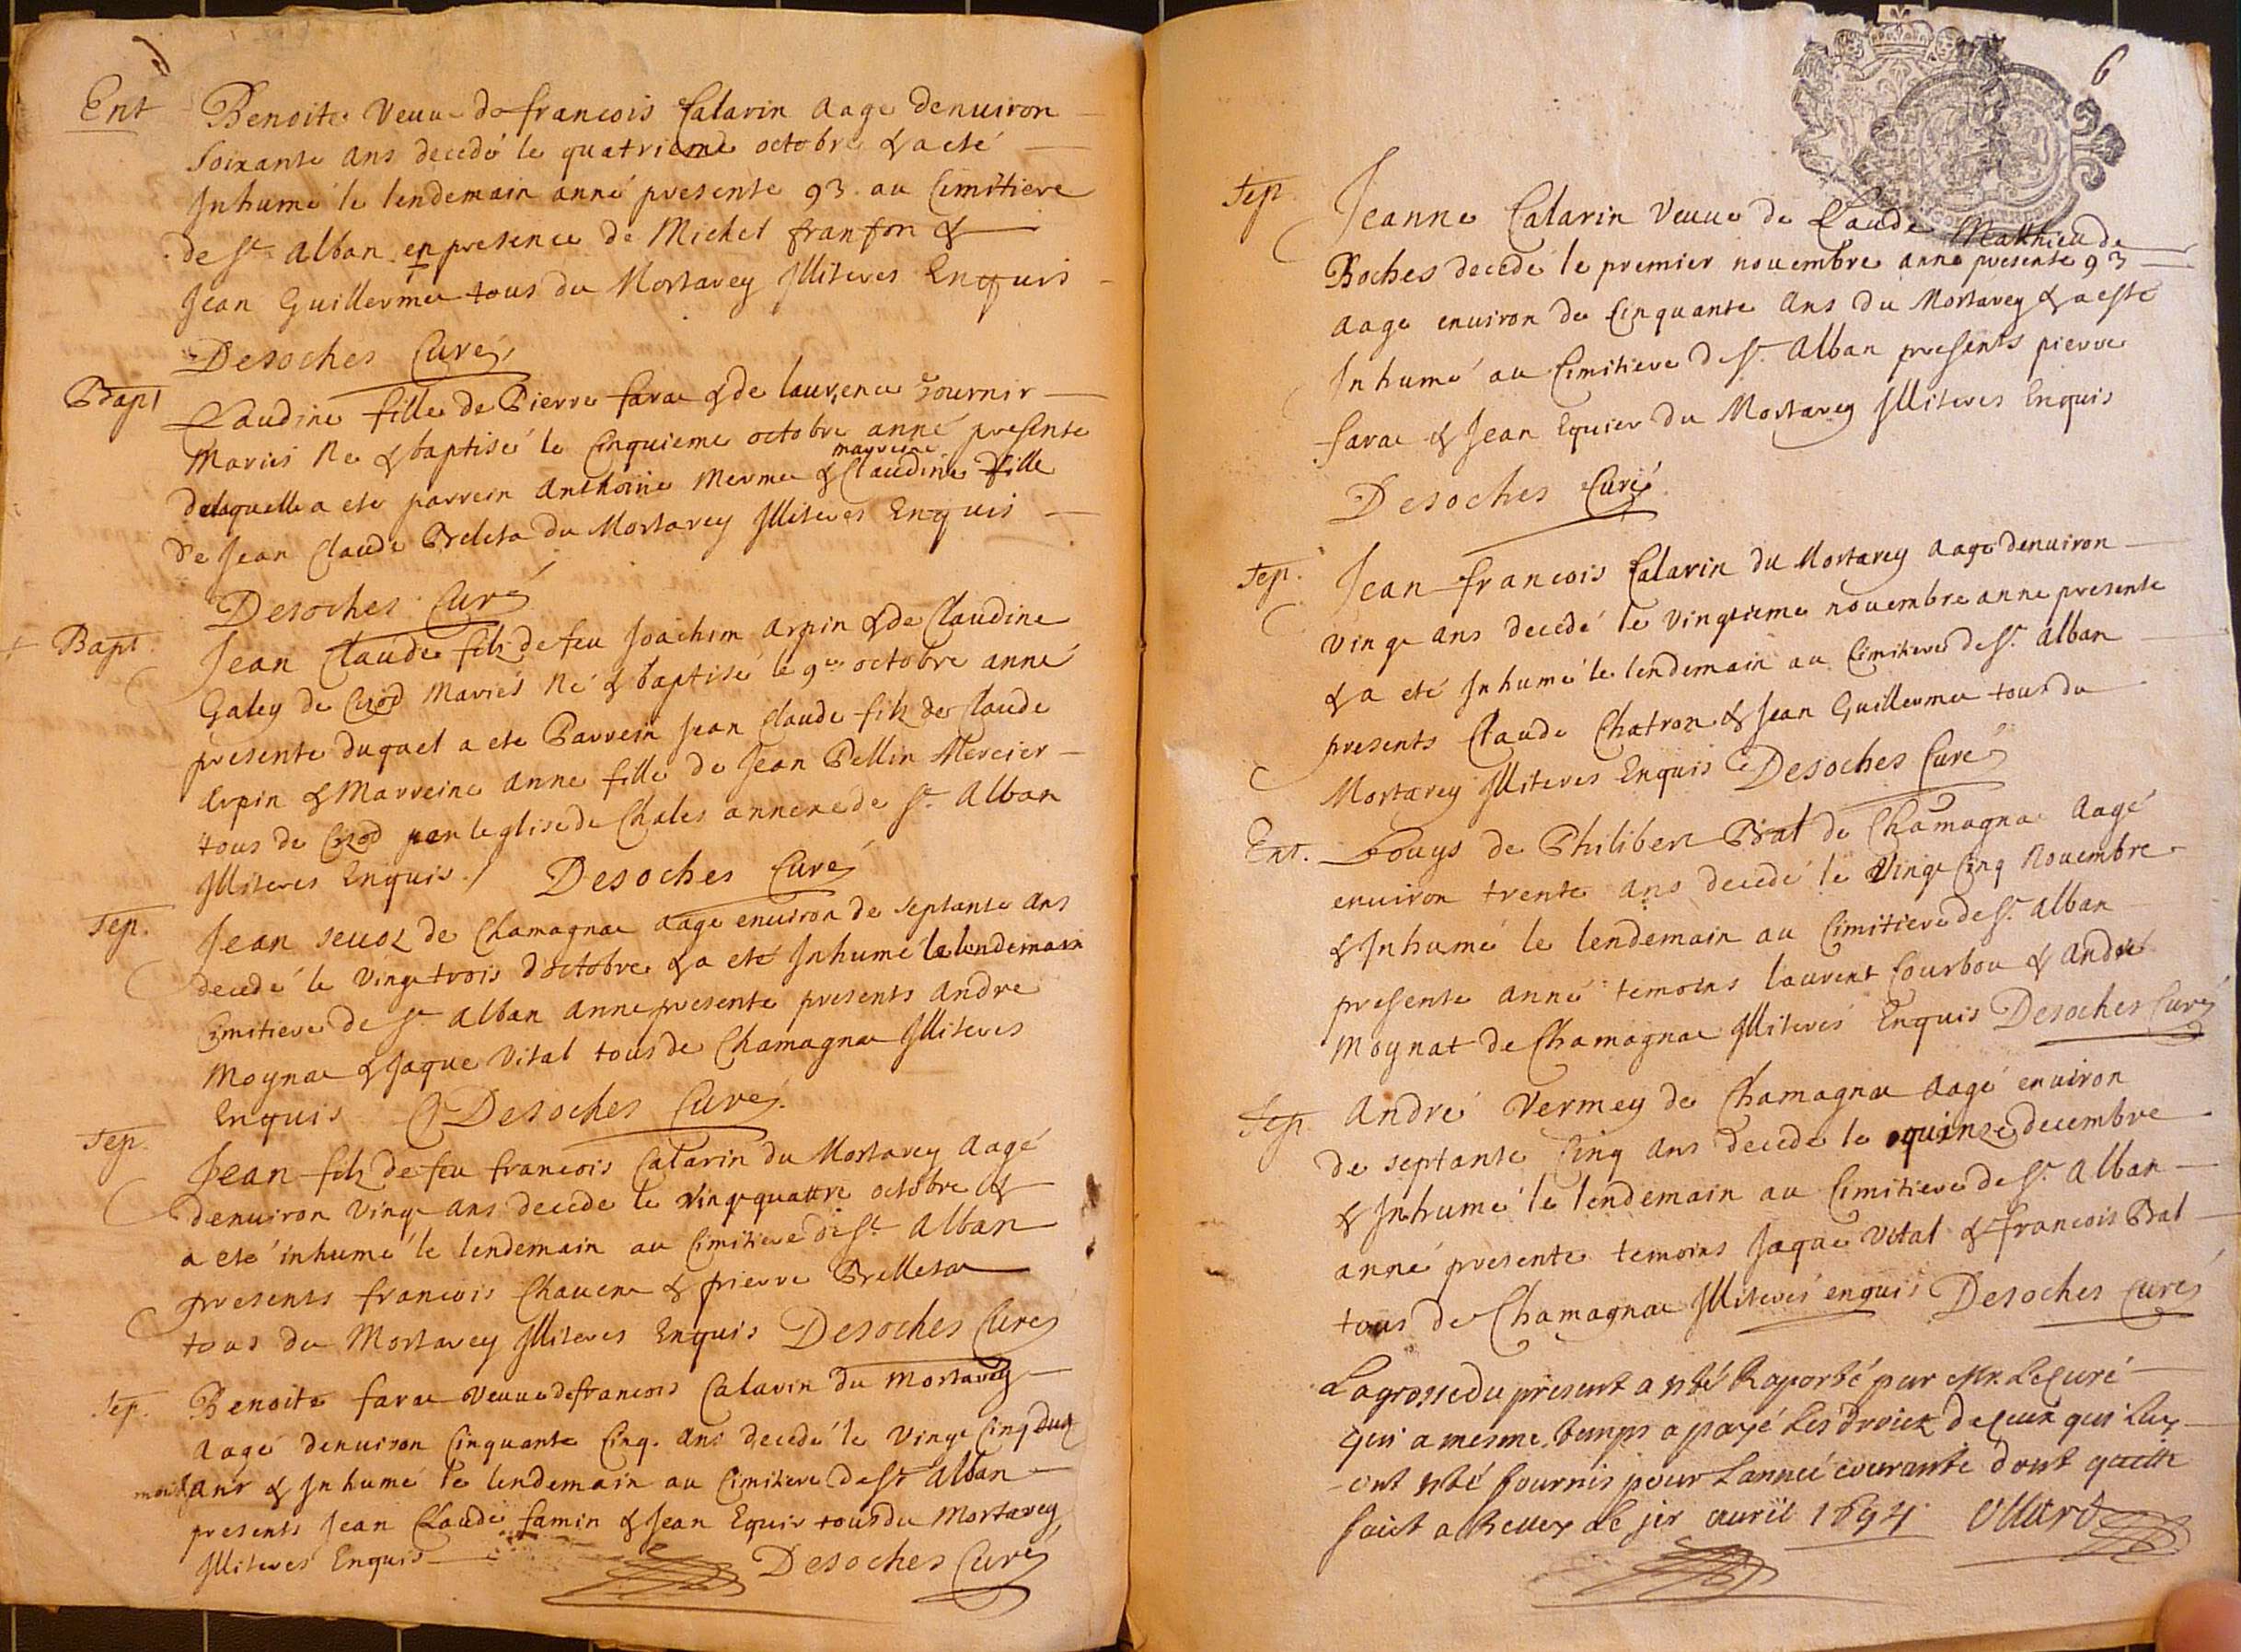 Ent
Benoite Veuue de francois Calarin Aage denuiron
Soixante ans decedé le quatrieme octobre & a eté
Inhumé le lendemain anné presente 93. au Cimitiere
de St Alban en presence de Michel franson &
Jean Guillermee tous du Mortarey Illiteres Enquis
Desoches Curé
Bapt
Claudine fille de Pierre farae & de laurence
Mariés Ne & baptisé le Cinquieme octobre anné presente
marreine
delaquelle a ete parrein Anthoine Merme & Claudine fille
de Jean Claude du Mortarey Illiteres Enquis
Desoches Curé
+ Bapt.
Jean Claude filz de feu Joachim Arpin & de Claudine
Galey de Cizod Mariés Né & baptisé le 9e octobre anné
presente duquel a ete Parrein Jean Claude filz de Claude
Arpin & Marreine Anne fille de Jean Pellin Mercier
tous de Cizod par leglise de Chales annexe de St Alban
Illiteres Enquis / Desoches Curé
Sep.
Jean seuoz de Chamagnae aage enuiron de septante ans
decedé le Vingt trois d'octobre & a eté Inhumé le lendemain
Cimitiere de St Alban anne presente presents Andre
Moynae & Jaque Vital tous de Chamagnae Illiteres
Enquis Desoches Curé.
Sep.
Jean filz de feu francois Calarin du Mortarey Aagé
denuiron Vingt ans decede le vingt quattre octobre &
a eté inhumé le lendemain au Cimitiere de St Alban
presents francois Chauene & pierre Brelletae
tous du Mortarey Illiteres Enquis Desoches Curé
Sep.
Benoite farae Veuue de francois Calarin du Mortarey
Aagé denuiron Cinquante Cinq. ans decedé le Vingt Cinq dud
mois & an & Inhumé le lendemain au Cimitiere de St Alban
presents Jean Claude & Jean Equir tous du Mortarey
Illiteres Enquis Desoches Curé
6
Sep.
Jeanne Calarin Veuue de Claude Matthieu de
Roches decedé le premier nouembre anne presente 93
Aage enuiron de Cinquante Ans du Mortarey & a esté
Inhumé au Cimitiere de St. Alban presents pierre
farae & Jean Equier du Mortarey Illiteres Enquis
Desoches Curé
Sep.
Jean francois Calarin du Mortarey Aage denuiron
vingt ans decedé le Vingtieme nouembre anne presente
& a eté Inhumé le lendemain au Cimitiere de St. Alban
presents Claude Chatron & Jean Guillermee tous du
Mortarey Illiteres Enquis Desoches Curé
Ent.
Louys de Philibert Bal de Chamagnae Aagé
enuiron trente ans decedé le Vingt Cinq Nouembre
& Inhumé le lendemain au Cimitiere de St. Alban
presente anné temoins laurent Courbou & André
Moynat de Chamagnae Illiterés Enquis Desoches Curé
Sep.
André Vermey de Chamagnae Aagé enuiron
de septante Cinq Ans decede le quinze decembre
& Inhumé le lendemain au Cimitiere de St. Alban
anné presente temoins Jaque Vital & francois Bal
tous de Chamagnae Illiterés enquis Desoches Curé
La grosse du present a esté Raporté par Mr. Le Curé
qui a mesme temps a payé Les droicz de ceux qui luy
ont esté fournis pour L'anneé courante dont quitt
faict a Belley le jer auril 1694